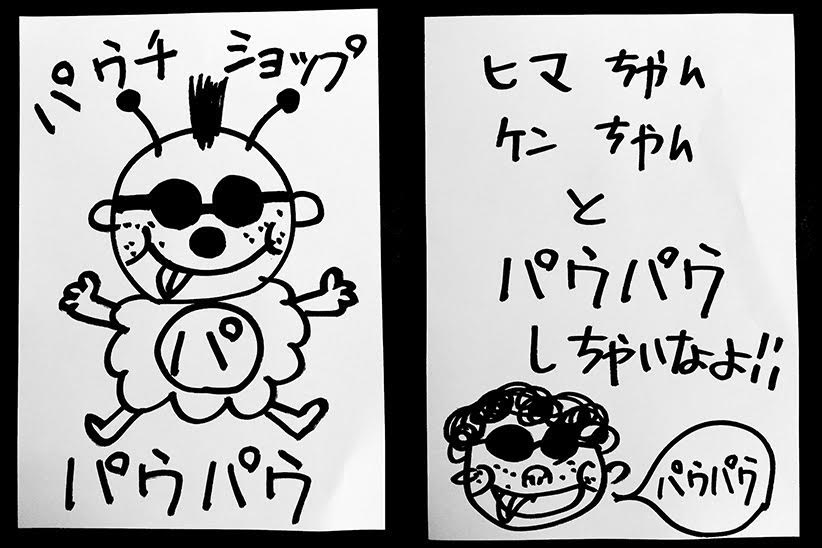 パウチ ショップ
パ
パウパウ
ヒマ ちゃん
ケン ちゃん
と
パウパウ
しちゃいなよ!!
パウパウ